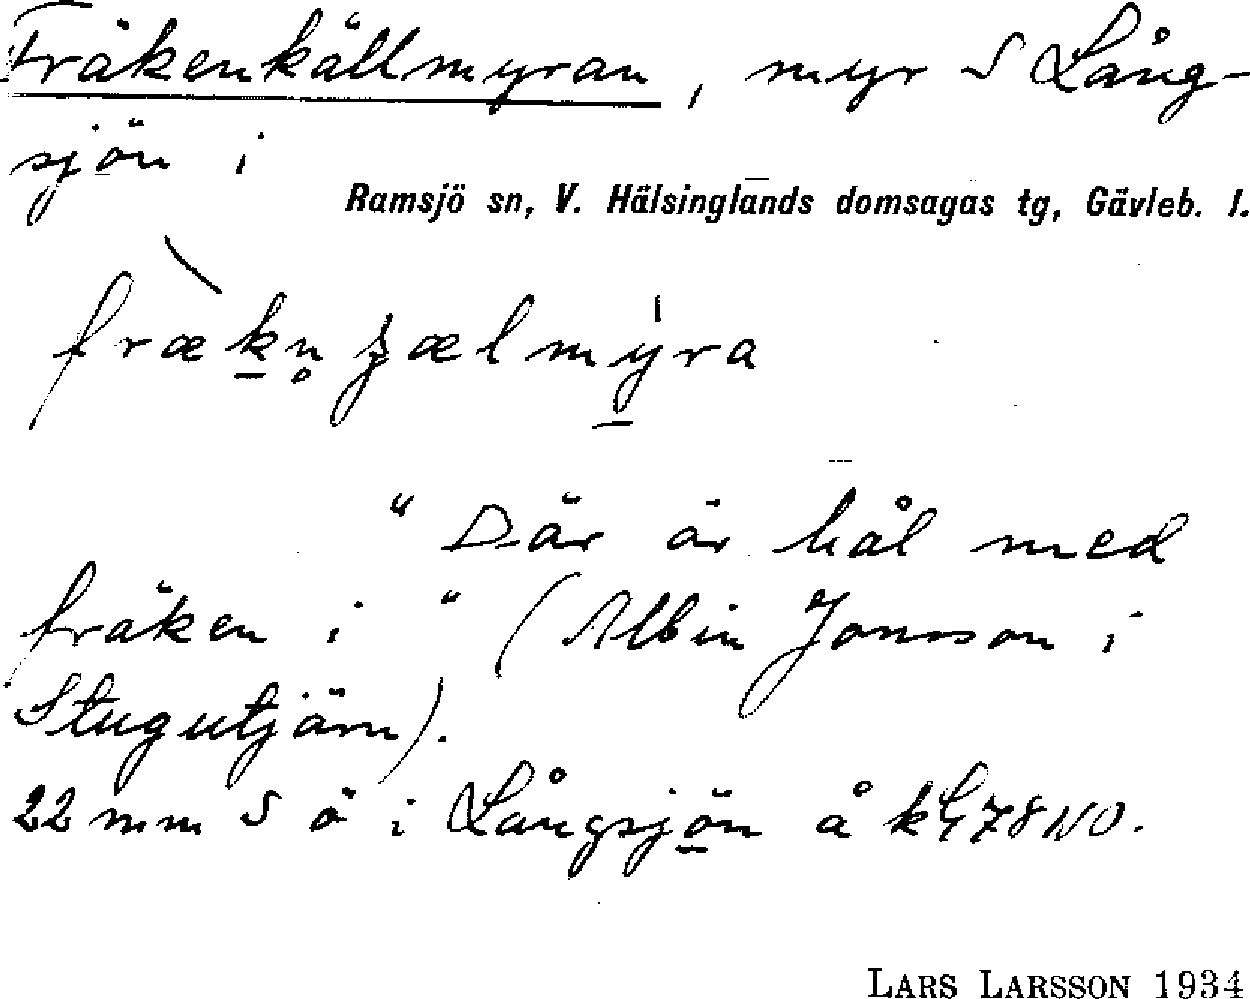 Fräkenkällmyran, myr S Lång-
sjön i
Ramsjö sn, V. Hälsinglands domsagas tg, Gävleb. l.
"Där är hål med
fräken i" (Albin Jonsson i
Stugutjärn).
22 mm S ö i Långsjön å kG 78 NO.
LARS LARSSON 1934